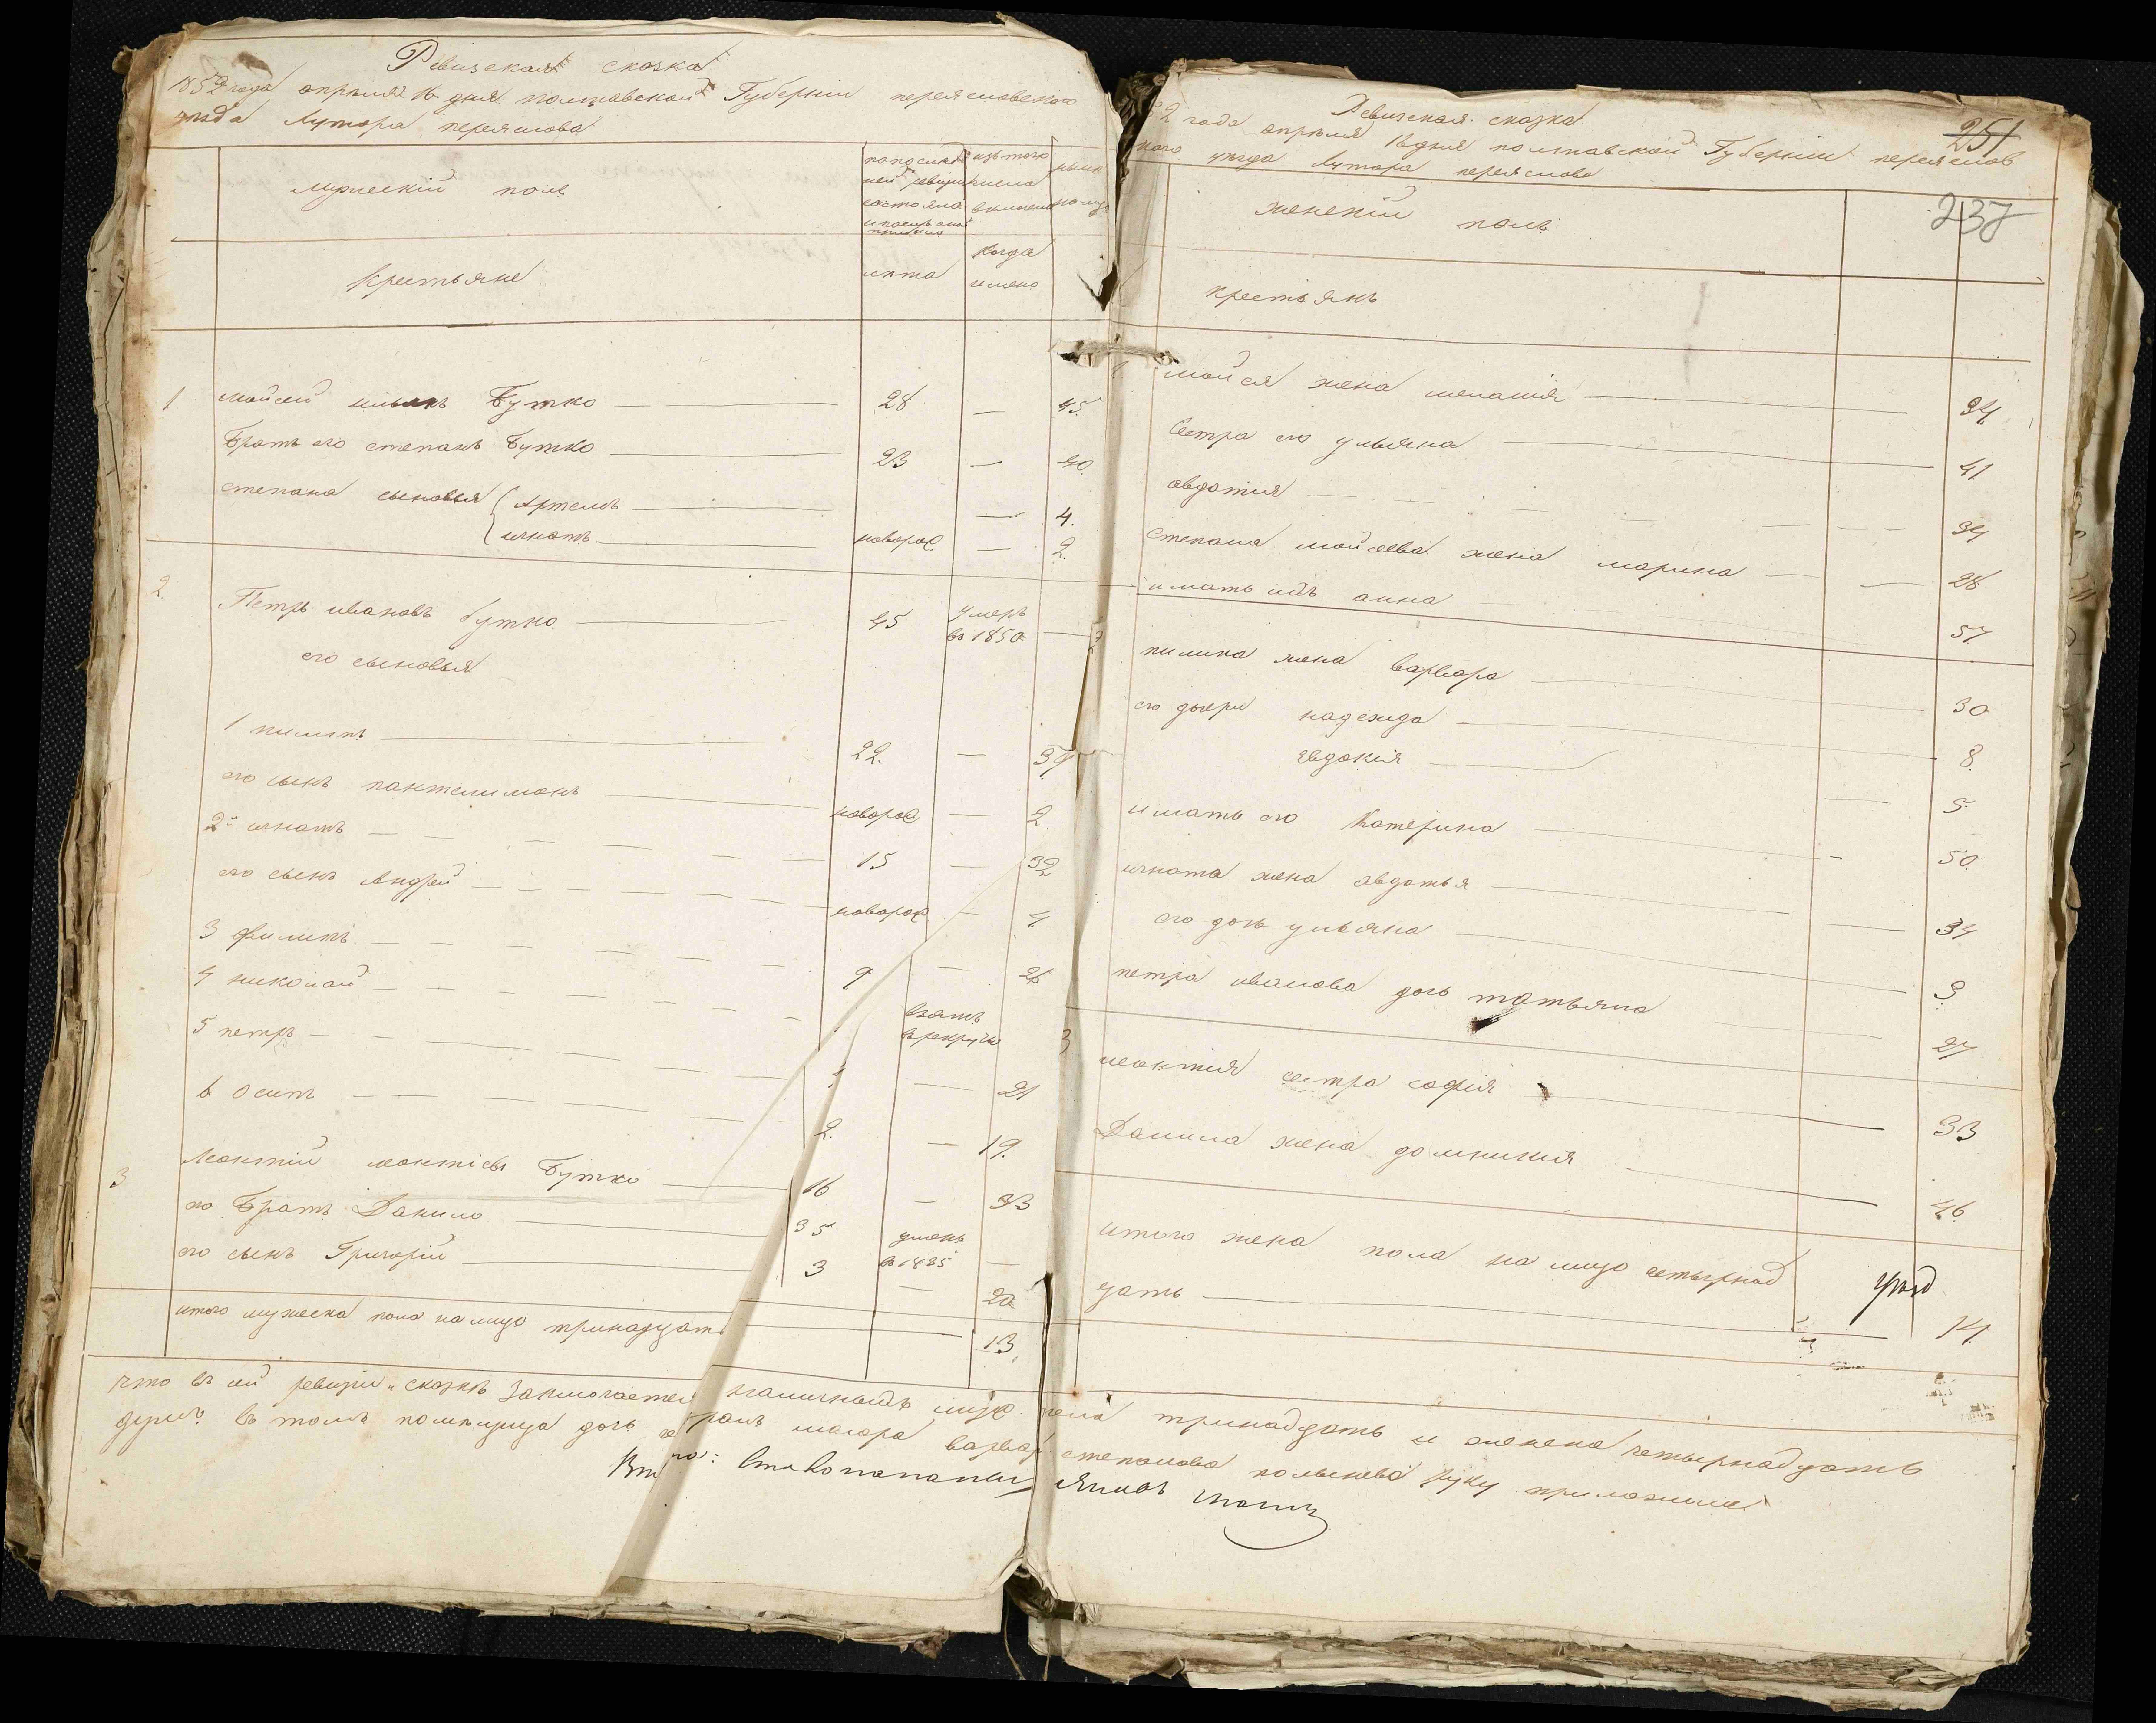 Ревизская сказка
1852 года апреля 16 дня полтавской Губернии переясловского
уезда Хутора переяслова
мужеский полъ
по последней ревизии состояло и после оной прибыло
изъ того числа выключено
ныне на лицо
Крестьяне
лета
Когда именно
1 Мойсей ильинъ Бутко — 28 — 45.
Братъ его степанъ Бутко — 23 — 40.
степана сыновья Артемъ — — 4.
игнатъ — новорож — 2.
2. Петръ ивановъ бутко — 45 умеръ въ 1850 —
его сыновья
1 пилипъ — 22. — 39
его сынъ пантелимонъ — новорож — 2.
2й игнатъ — 15 — 32
его сынъ Андрей — новорож — 4
3 филипъ — 9 — 26
4 николай — взятъ в рекруты
5 петръ — — 21
6 осипъ — 2. — 19.
3 Леонтий леонтиевъ Бутко — 16 — 33
его Братъ Данило — 35 умеръ в 1835 —
его сынъ Григорий — 3 — 20
итого мужеска пола на лицо тринадцать 13.
Ревизская сказка
2 года апреля 16 дня полтавской Губернии переяслов
ского уезда Хутора переяслова
251
237
женский полъ
крестьянъ
1 мойсея жена мелания — 34
Сестра его ульяна — 41
авдотия — 34
Степана мойсеева жена марина — 28
и мать ихъ анна — 57
2 пилипа жена варвара — 30
его дочери надежда — 8.
евдокия — 5
и мать его Катерина — 50.
игната жена авдотья — 34
его дочь ульяна — 3
петра иванова дочь татьяна — 27
3 леонтия сестра софия — 33
Данила жена домникия — 46
итого женска пола на лицо четырнад
цать — 14.
что въ сей ревизи сказке Заключается наличныхъ мужеска пола тринадцать и женска четырнадцать
душъ въ томъ помещица дочь маиора варвара степанова руку приложила